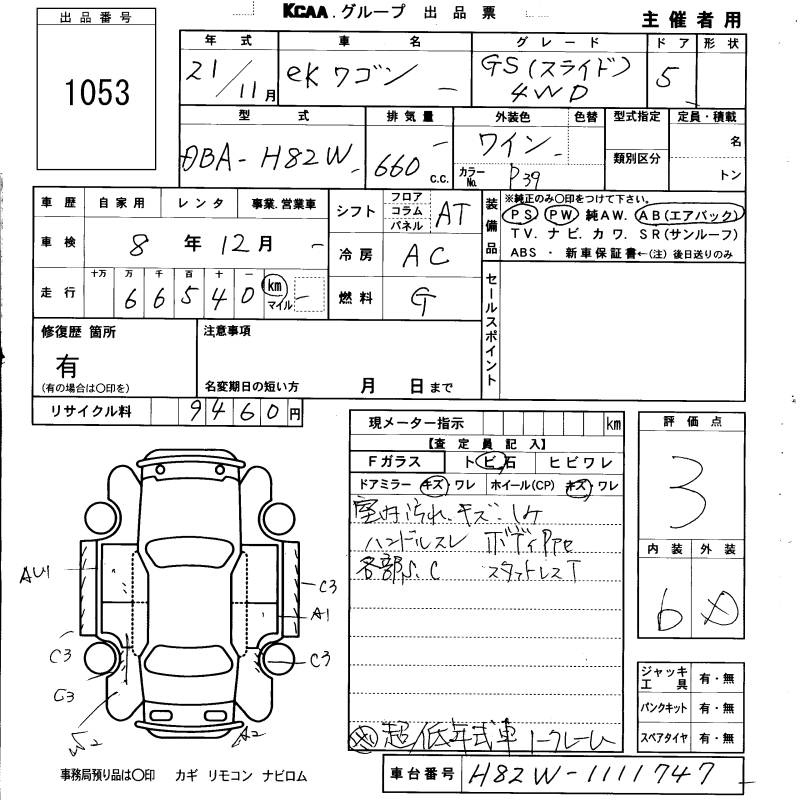 KCAA.グループ 出品票
主催者用
出品番号
1053
年式 車名 グレード ドア 形状
21/11月 eKワゴン GS(スライド) 4WD 5
型式 排気量 外装色 色替 型式指定 定員・積載
DBA-H82W 660 c.c. ワイン カラーNo. P39 類別区分 名 トン
車歴 自家用 レンタ 事業.営業車
車検 8年12月
走行 十万 万 千 百 十 一 km マイル
66540
シフト フロア コラム パネル AT
冷房 AC
燃料 G
装備品 ※純正のみ〇印をつけて下さい。
PS PW 純AW. AB(エアバック)
TV. ナビ. カワ. SR(サンルーフ)
ABS ・ 新車保証書←(注)後日送りのみ
セールスポイント
修復歴 箇所
有
(有の場合は〇印を)
注意事項
名変期日の短い方 月 日まで
リサイクル料 9460円
現メーター指示 km
【査定員記入】
Fガラス トビ石 ヒビワレ
ドアミラー キズ・ワレ ホイール(CP) キズ・ワレ
室内汚れ、キズ.
ハンドルスレ ボディ
各部S.C スタットレスT
超低年式車
評価点
3
内装 外装
6 D
AU1
C3
A1
C3
C3
G3
W2
A2
ジャッキ工具 有・無
パンクキット 有・無
スペアタイヤ 有・無
事務局預り品は〇印 カギ リモコン ナビロム
車台番号 H82W-1111747